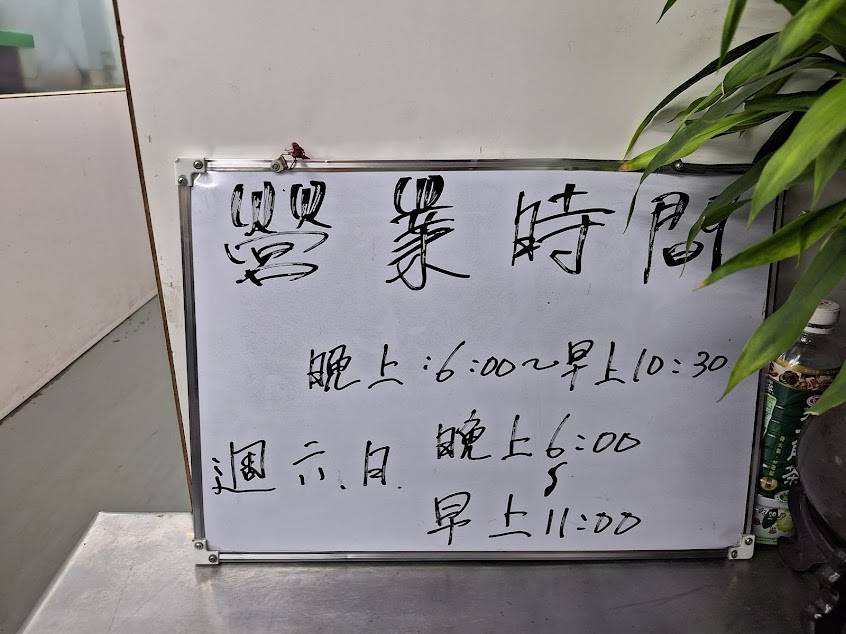 營業時間
晚上:6:00~早上10:30
週六.日. 晚上6:00
~
早上11:00